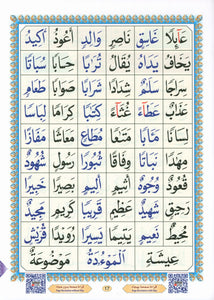 عَآئِلًا غَاسِقٍ نَاصِرٍ وَالِدٍ أَعُوذُ أَكِيدُ
يَخَافُ يَدَاهُ يُقَالُ تُرَابًا حِسَابًا سُبَاتًا
سِرَاجًا سَلٰمٌ شِدَادًا شَرَابًا صَوَابًا طَعَامٍ
عَذَابٌ عَطَآءً غُثَآءً كِتٰبًا كِرَامًا لِبَاسًا
لِسَانًا مَاٰبًا مَتَاعًا مُطَاعٍ مَعَاشًا مَفَازًا
مِهٰدًا نَبَاتًا وِفَاقًا ثُبُورًا رَسُولٍ شُهُودٌ
قُعُودٌ وُجُوهٌ أَثِيمٍ أَلِيمٍ بَصِيرًا خَبِيرًا
رَحِيقٍ شَهِيدٌ عَظِيمٍ قَرِيبًا كَرِيمٍ مَجِيدٌ
مُحِيطٌ نَعِيمٍ يَتِيمًا يَسِيرًا رُوَيْدًا قُرَيْشٍ
عِيشَةٍ الْمَوْءٗدَةُ مَوْضُوعَةٌ
١٧